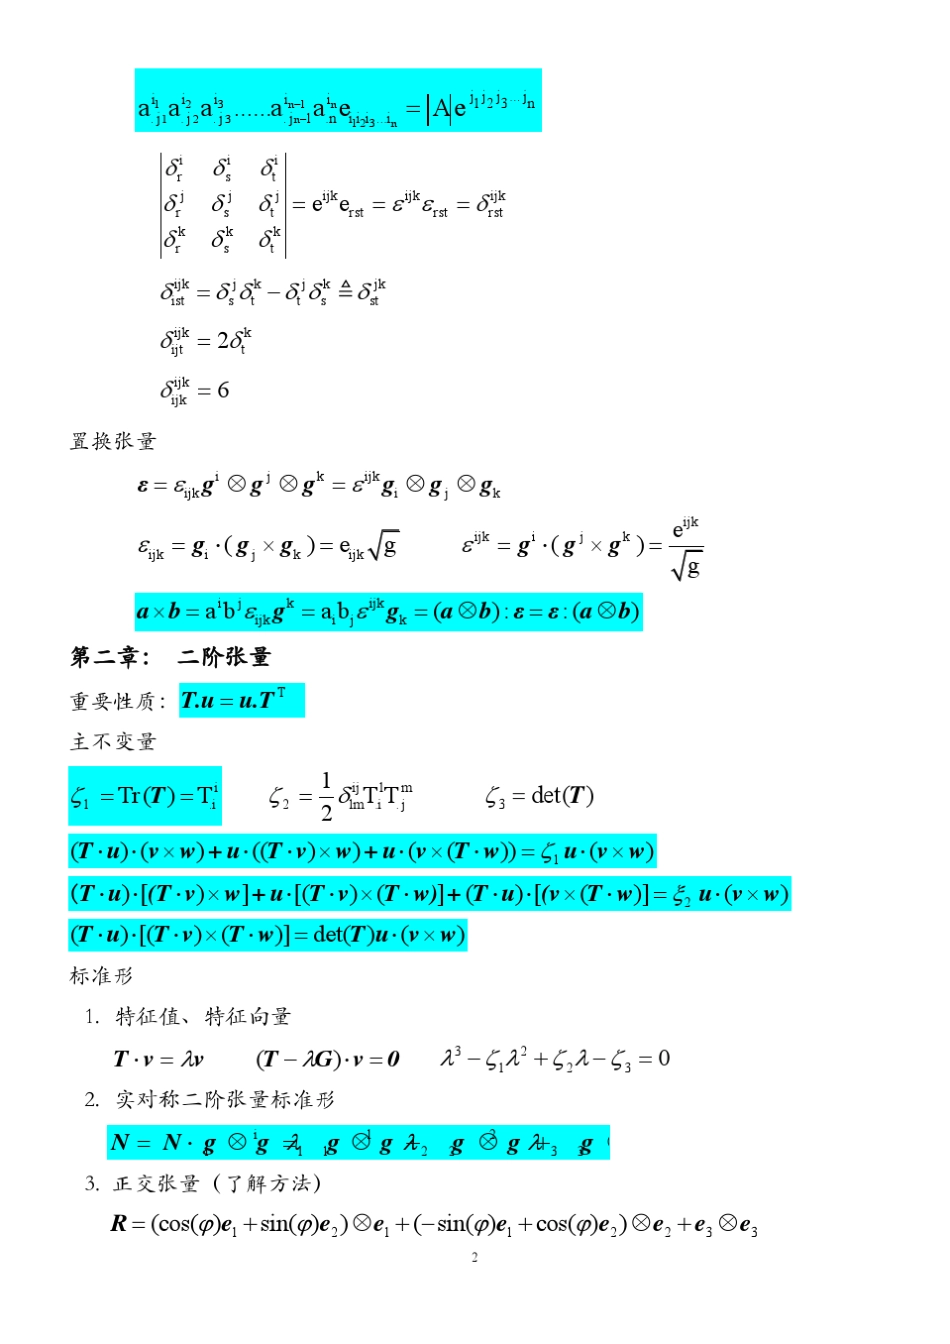 a^{i_1}_{.j1} a^{i_2}_{.j2} a^{i_3}_{.j3} ...... a^{i_{n-1}}_{.jn-1} a^{i_n}_{.n} e_{i_1i_2i_3...i_n} = |A| e^{j_1j_2j_3...j_n}
| δ^i_r δ^i_s δ^i_t |
| δ^j_r δ^j_s δ^j_t | = e^{ijk}e_{rst} = ε^{ijk}ε_{rst} = δ^{ijk}_{rst}
| δ^k_r δ^k_s δ^k_t |
δ^{ijk}_{ist} = δ^j_s δ^k_t − δ^j_t δ^k_s ≜ δ^{jk}_{st}
δ^{ijk}_{ijt} = 2δ^k_t
δ^{ijk}_{ijk} = 6
置换张量
ε = ε_{ijk} g^i ⊗ g^j ⊗ g^k = ε^{ijk} g_i ⊗ g_j ⊗ g_k
ε_{ijk} = g_i · ( g_j × g_k ) = e_{ijk} √g ε^{ijk} = g^i · ( g^j × g^k ) = e^{ijk} / √g
a × b = a^i b^j ε_{ijk} g^k = a_i b_j ε^{ijk} g_k = (a ⊗ b) : ε = ε : (a ⊗ b)
第二章： 二阶张量
重要性质： T.u = u.T^T
主不变量
ζ_1 = Tr(T) = T^i_{.i} ζ_2 = 1/2 δ^{ij}_{lm} T^l_{.i} T^m_{.j} ζ_3 = det(T)
(T · u) · (v × w) + u · ((T · v) × w) + u · (v × (T · w)) = ζ_1 u · (v × w)
(T · u) · [(T · v) × w] + u · [(T · v) × (T · w)] + (T · u) · [(v × (T · w)] = ξ_2 u · (v × w)
(T · u) · [(T · v) × (T · w)] = det(T) u · (v × w)
标准形
1. 特征值、特征向量
T · v = λv (T − λG) · v = 0 λ^3 − ζ_1 λ^2 + ζ_2 λ − ζ_3 = 0
2. 实对称二阶张量标准形
N = N · g ⊗ g^i = λ_1 g_1 ⊗ g^1 + λ_2 g ⊗ g^2 + λ_3 g
3. 正交张量（了解方法）
R = (cos(φ)e_1 + sin(φ)e_2) ⊗ e_1 + (− sin(φ)e_1 + cos(φ)e_2) ⊗ e_2 + e_3 ⊗ e_3
2